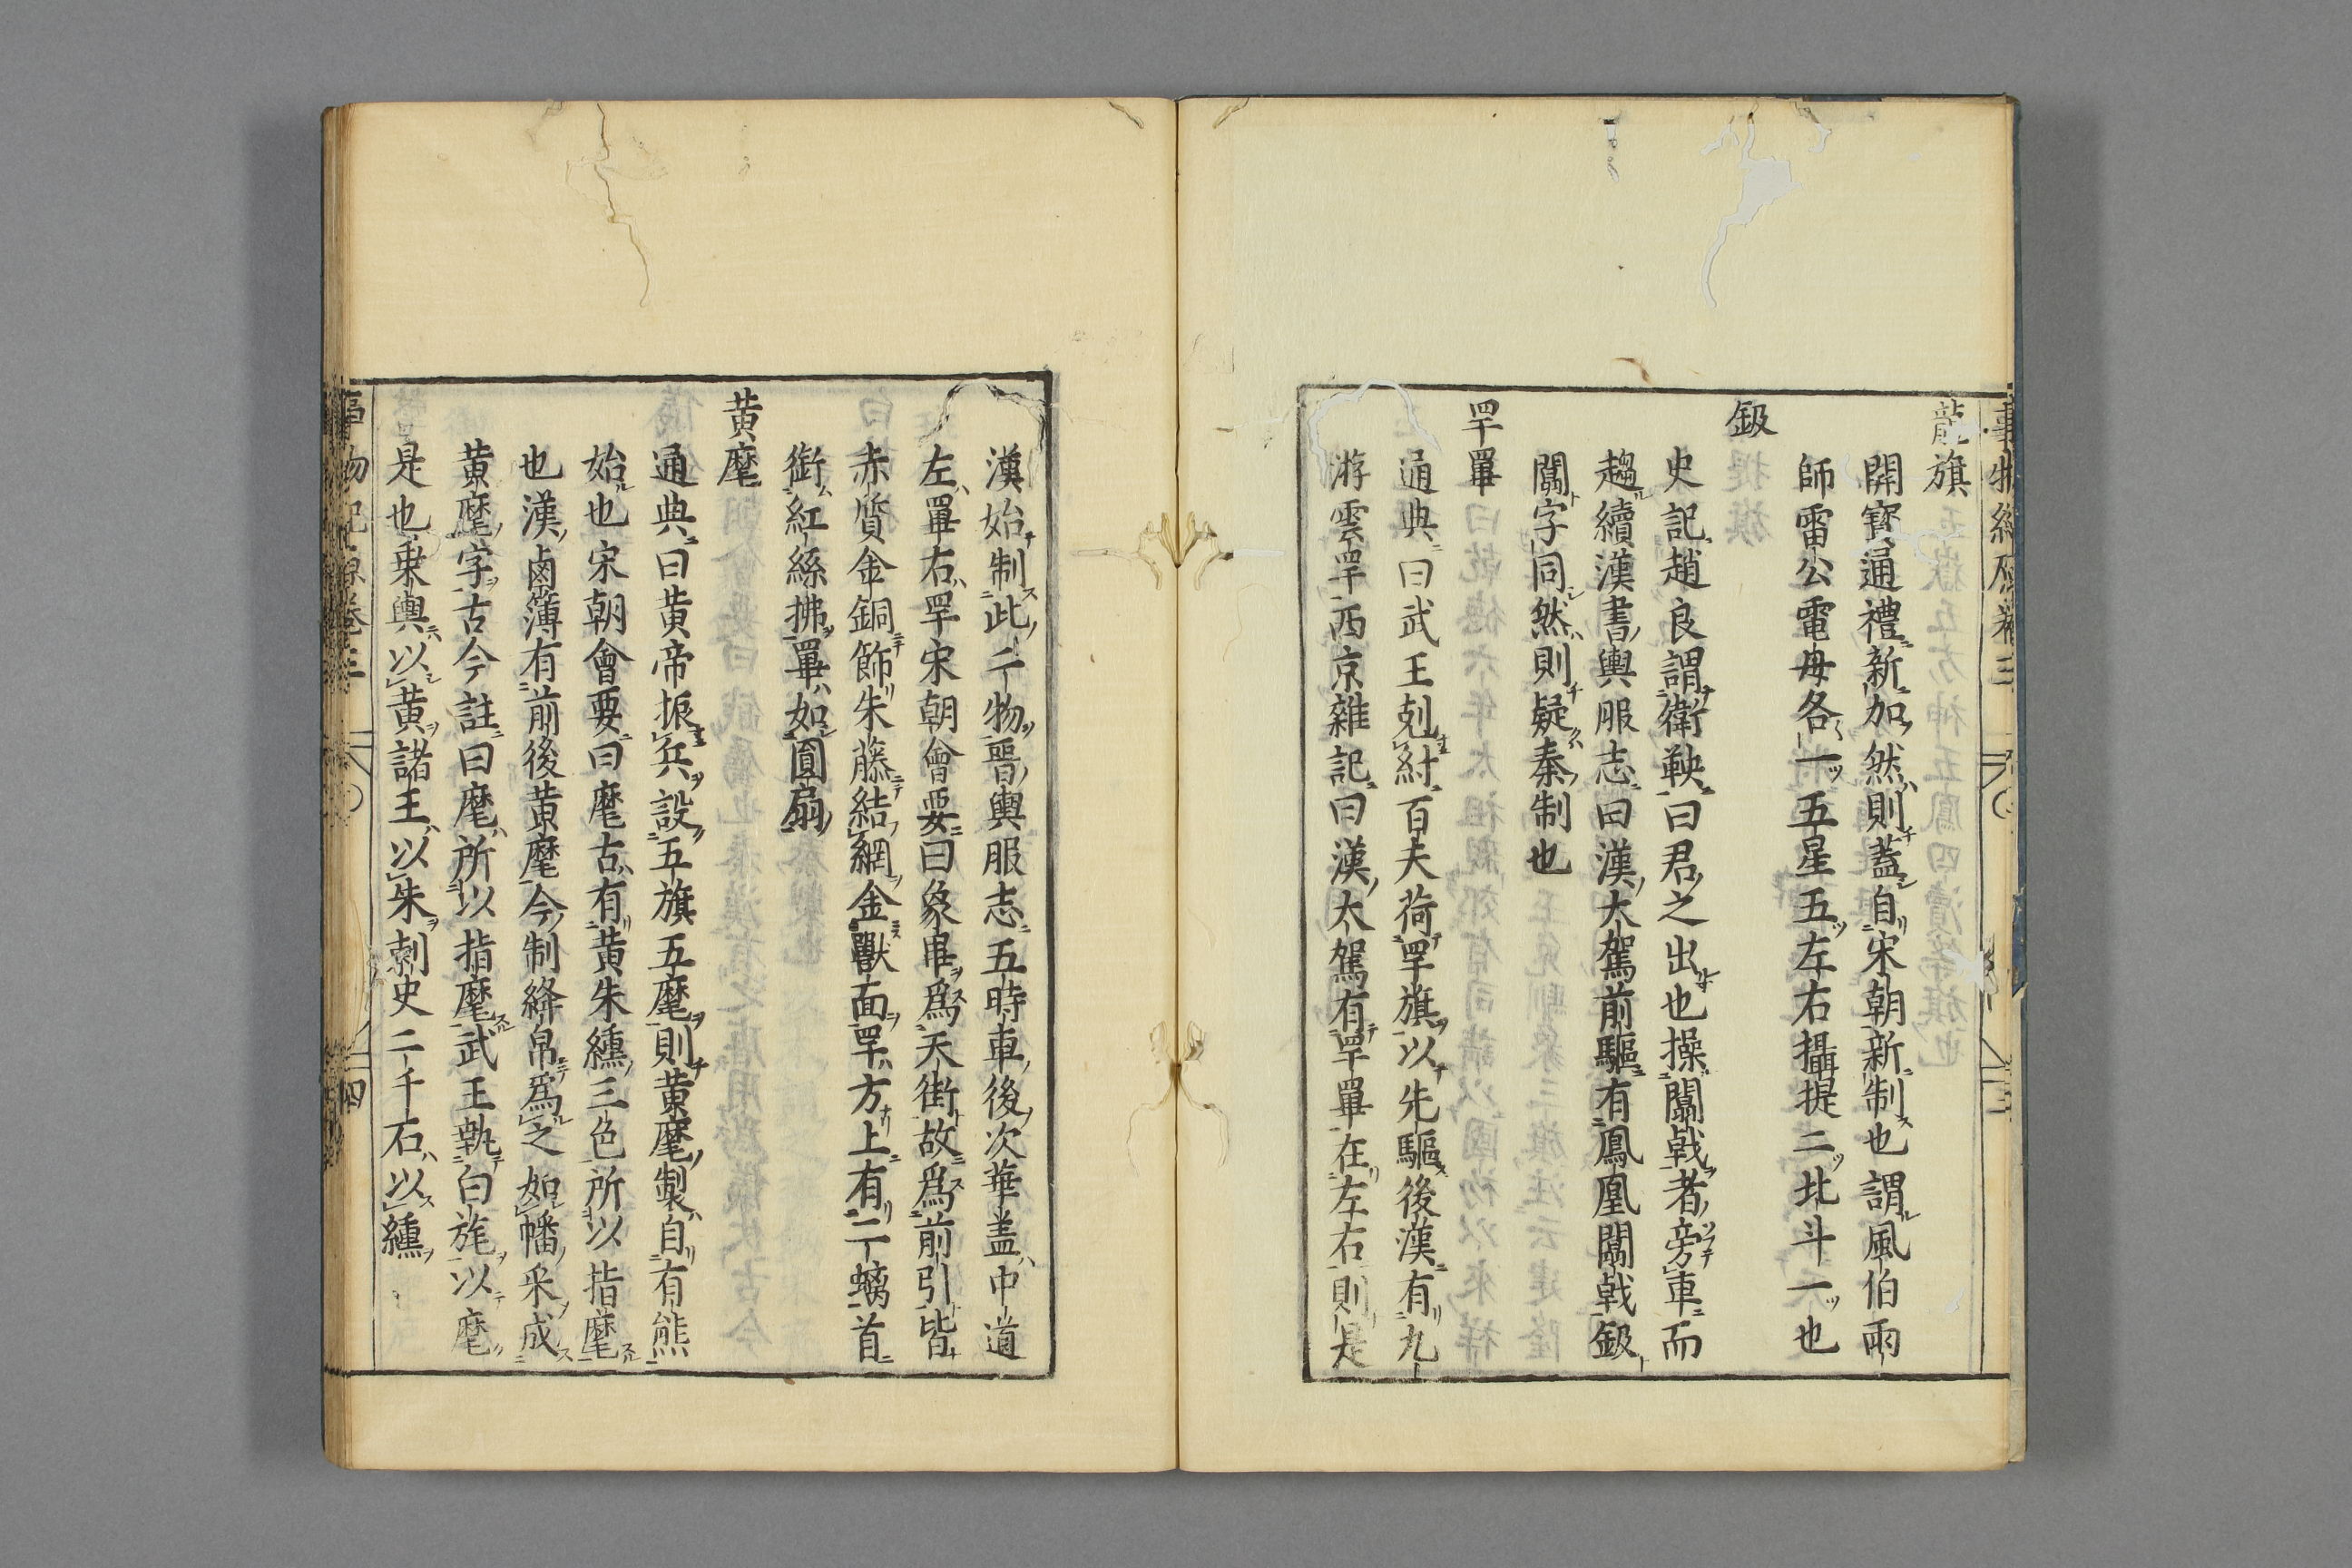 龍旗
開寳通禮新加然則蓋自宋朝新制也謂風伯雨
師雷公電母各一五星五左右攝提二北斗一也
鈒
史記趙良謂衛鞅曰君之出也操闟戟者旁車而
趨續漢書輿服志曰漢大駕前驅有鳳凰闟戟鈒
闟字同然則疑秦制也
罕罼
通典曰武王剋紂百夫荷罕旗以先驅後漢有九
游雲罕西京雜記曰漢大駕有罕罼在左右則是
漢始制此二物晋輿服志五時車後次華盖中道
左罼右罕宋朝會要曰象畢爲天街故爲前引皆
赤質金銅飾朱藤結網金獸面罕方上有二螭首
銜紅絲拂罼如圓扇
黄麾
通典曰黄帝振兵設五旗五麾則黄麾製自有熊
始也宋朝會要曰麾古有黄朱纁三色所以指麾
也漢鹵簿有前後黄麾今制絳帛爲之如幡釆成
黄麾字古今註曰麾所以指麾武王執白旄以麾
是也乗輿以黄諸王以朱刺史二千石以纁
事物紀原卷三 四